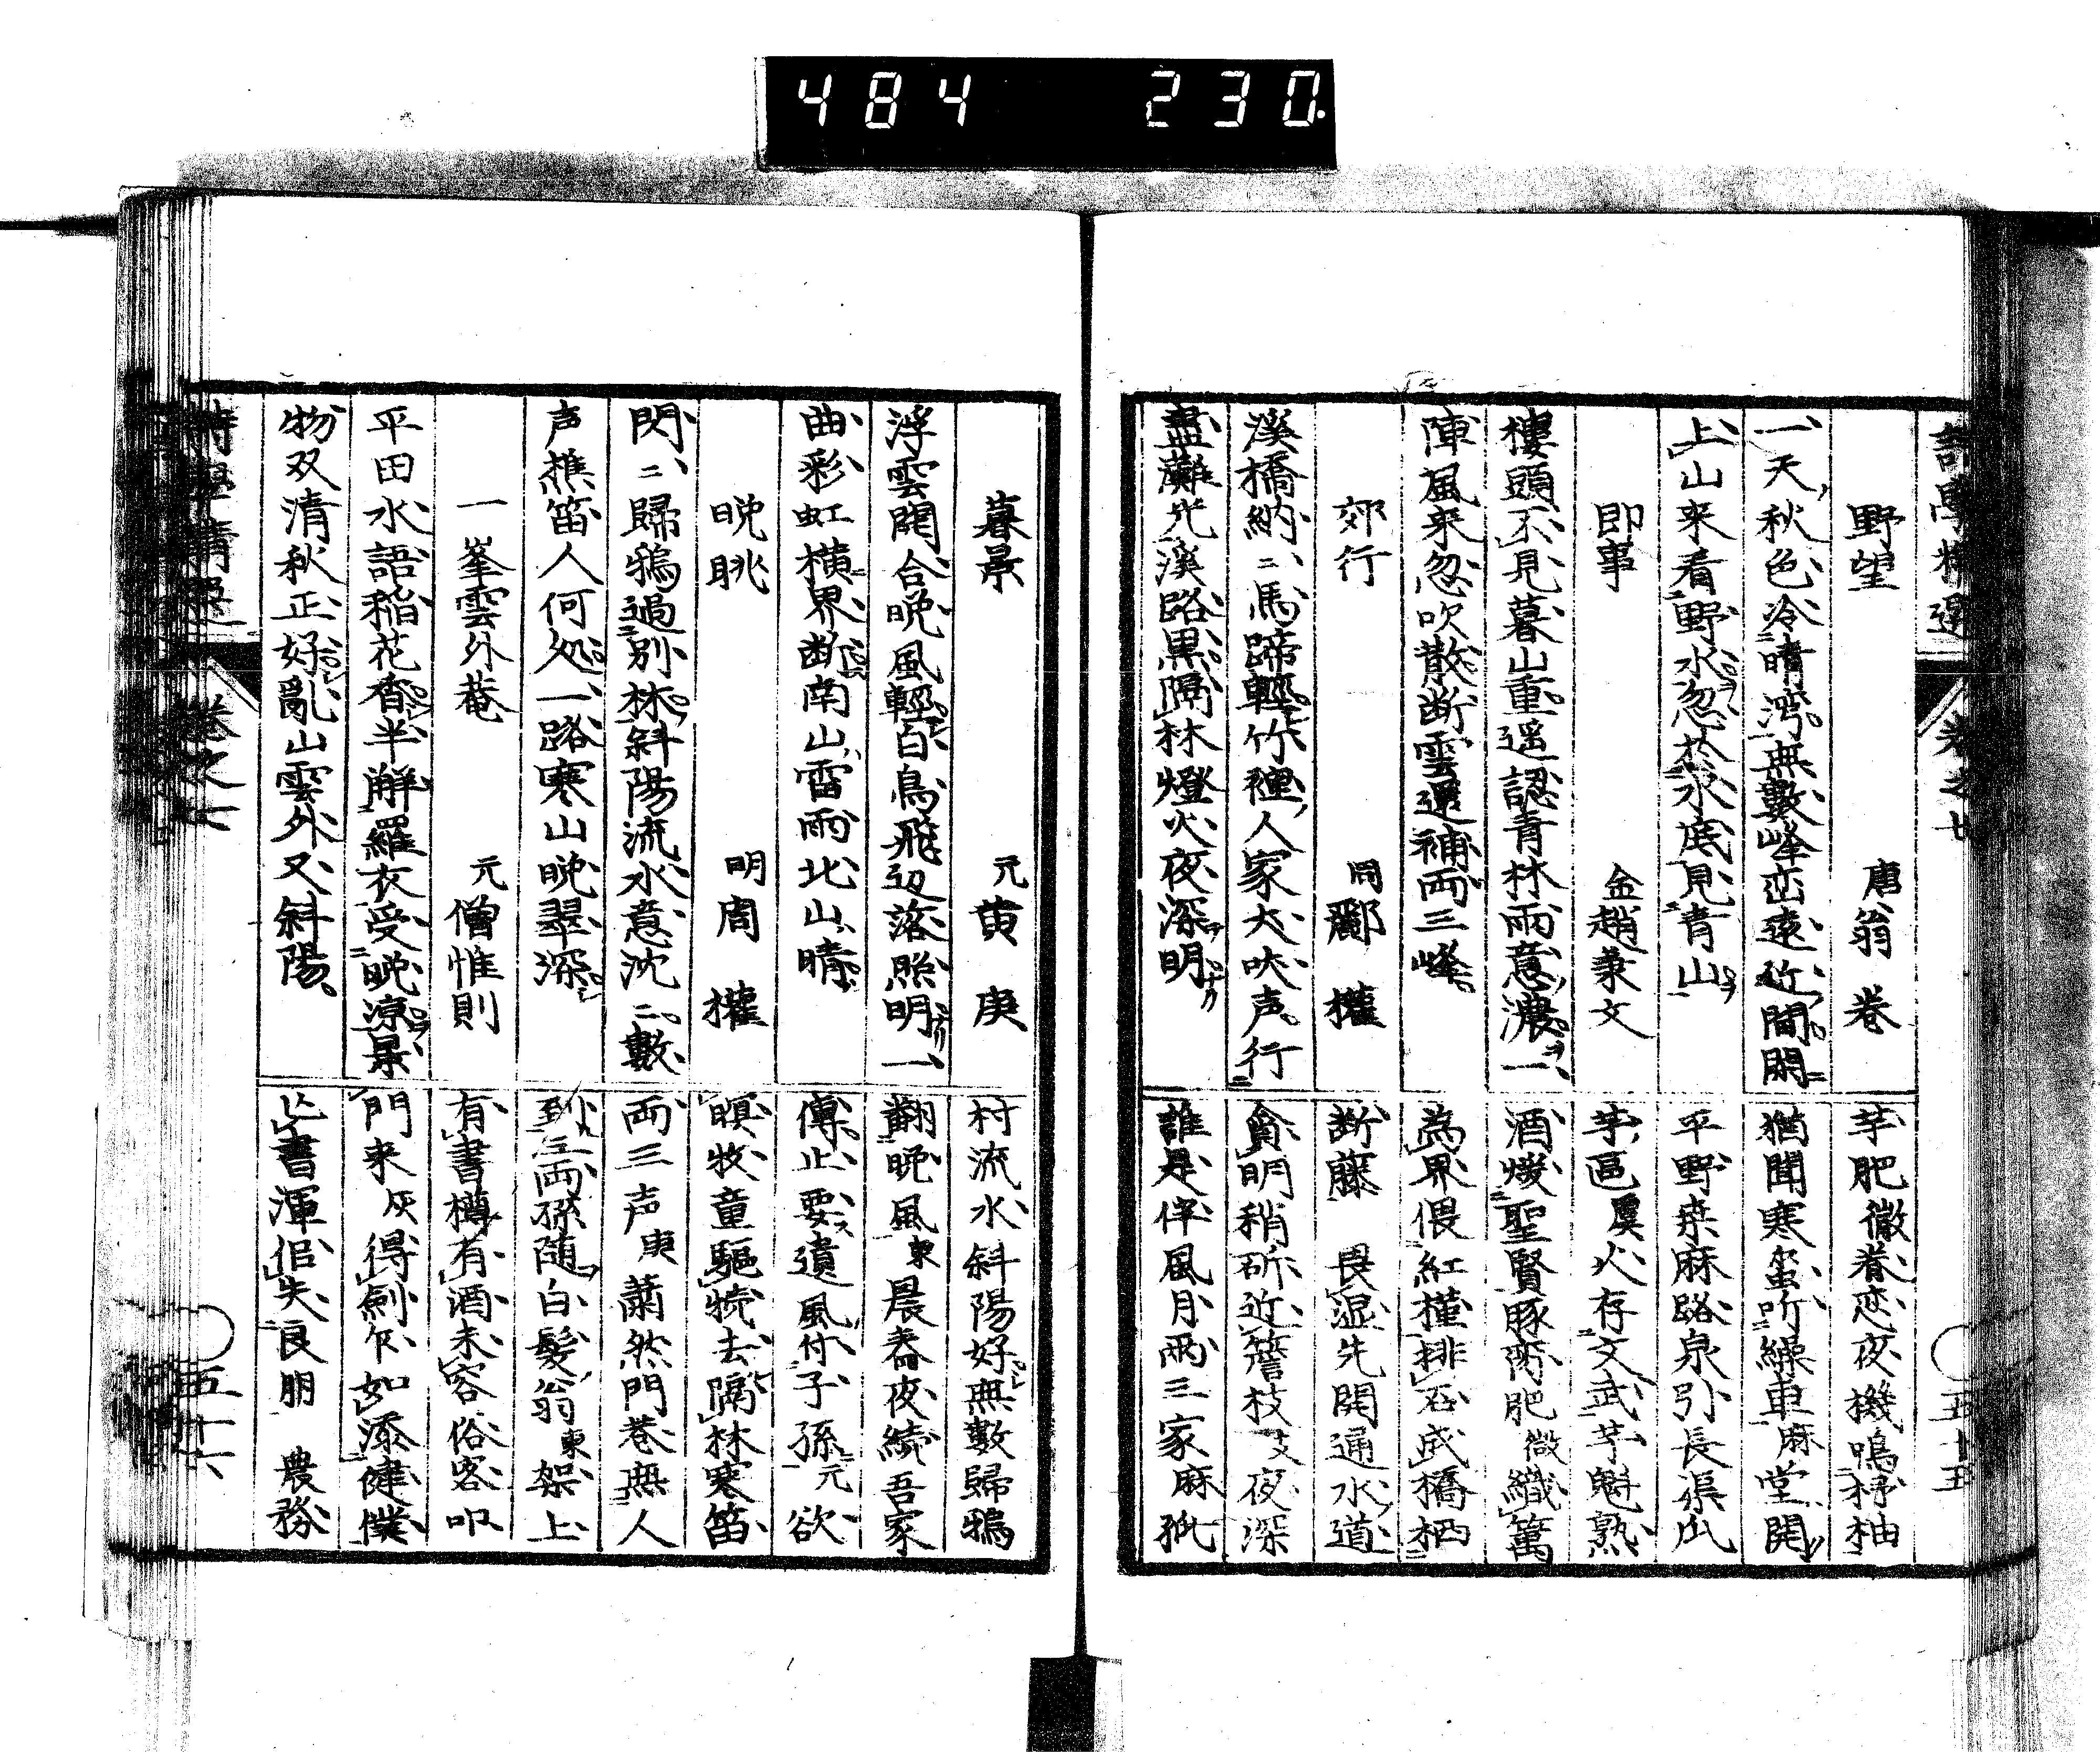 484 230
野望 唐翁卷
一天秋色冷晴湾無數峰峦遠近間閑
上山来看野水忽於水底見青山
即事 金趙秉文
樓頭不見暮山重遥認青林雨意濃一
陣風来忽吹散断雲還補両三峰
郊行 同酈權
溪橋納〻馬蹄輕竹裡人家犬吠声行
盡灘光溪路黒隔林燈火夜深明
芋肥微春恋夜機鳴杼柚
猶聞寒蛩听繰車麻堂開
平野桒麻路泉引長渠瓜
芋區虞火存文武芋魁熟
酒煖聖賢豚䏑肥微織篱
為界偎紅槿排石成橋栖
断藤 畏湿先開通水道
貪明稍斫近簷枝支夜深
誰是伴風月両三家麻
卷之七
五十五
暮景 元黄庚
浮雲開合晩風輕白鳥飛边落照明一
曲彩虹横界断南山雷雨北山晴
晩眺 明周權
閃〻歸鴉過別林斜陽流水意沈〻數
声樵笛人何処一路寒山晩翠深
一峯雲外菴 元僧惟則
平田水語稲花香半解羅衣受晩凉景
物双清秋正好亂山雲外又斜陽
村流水斜陽好無數歸鴉
翻晩風東晨舂夜績吾家
傳止要遺風付子孫元欲
暝牧童驅犢去隔林寒笛
両三声庚蕭然門巷無人
到両孫随白髪翁東架上
有書樽有酒未容俗客叩
門来灰得劍乍如添健僕
亡書渾侣失良朋 農務
詩學精選 卷之七
五十六